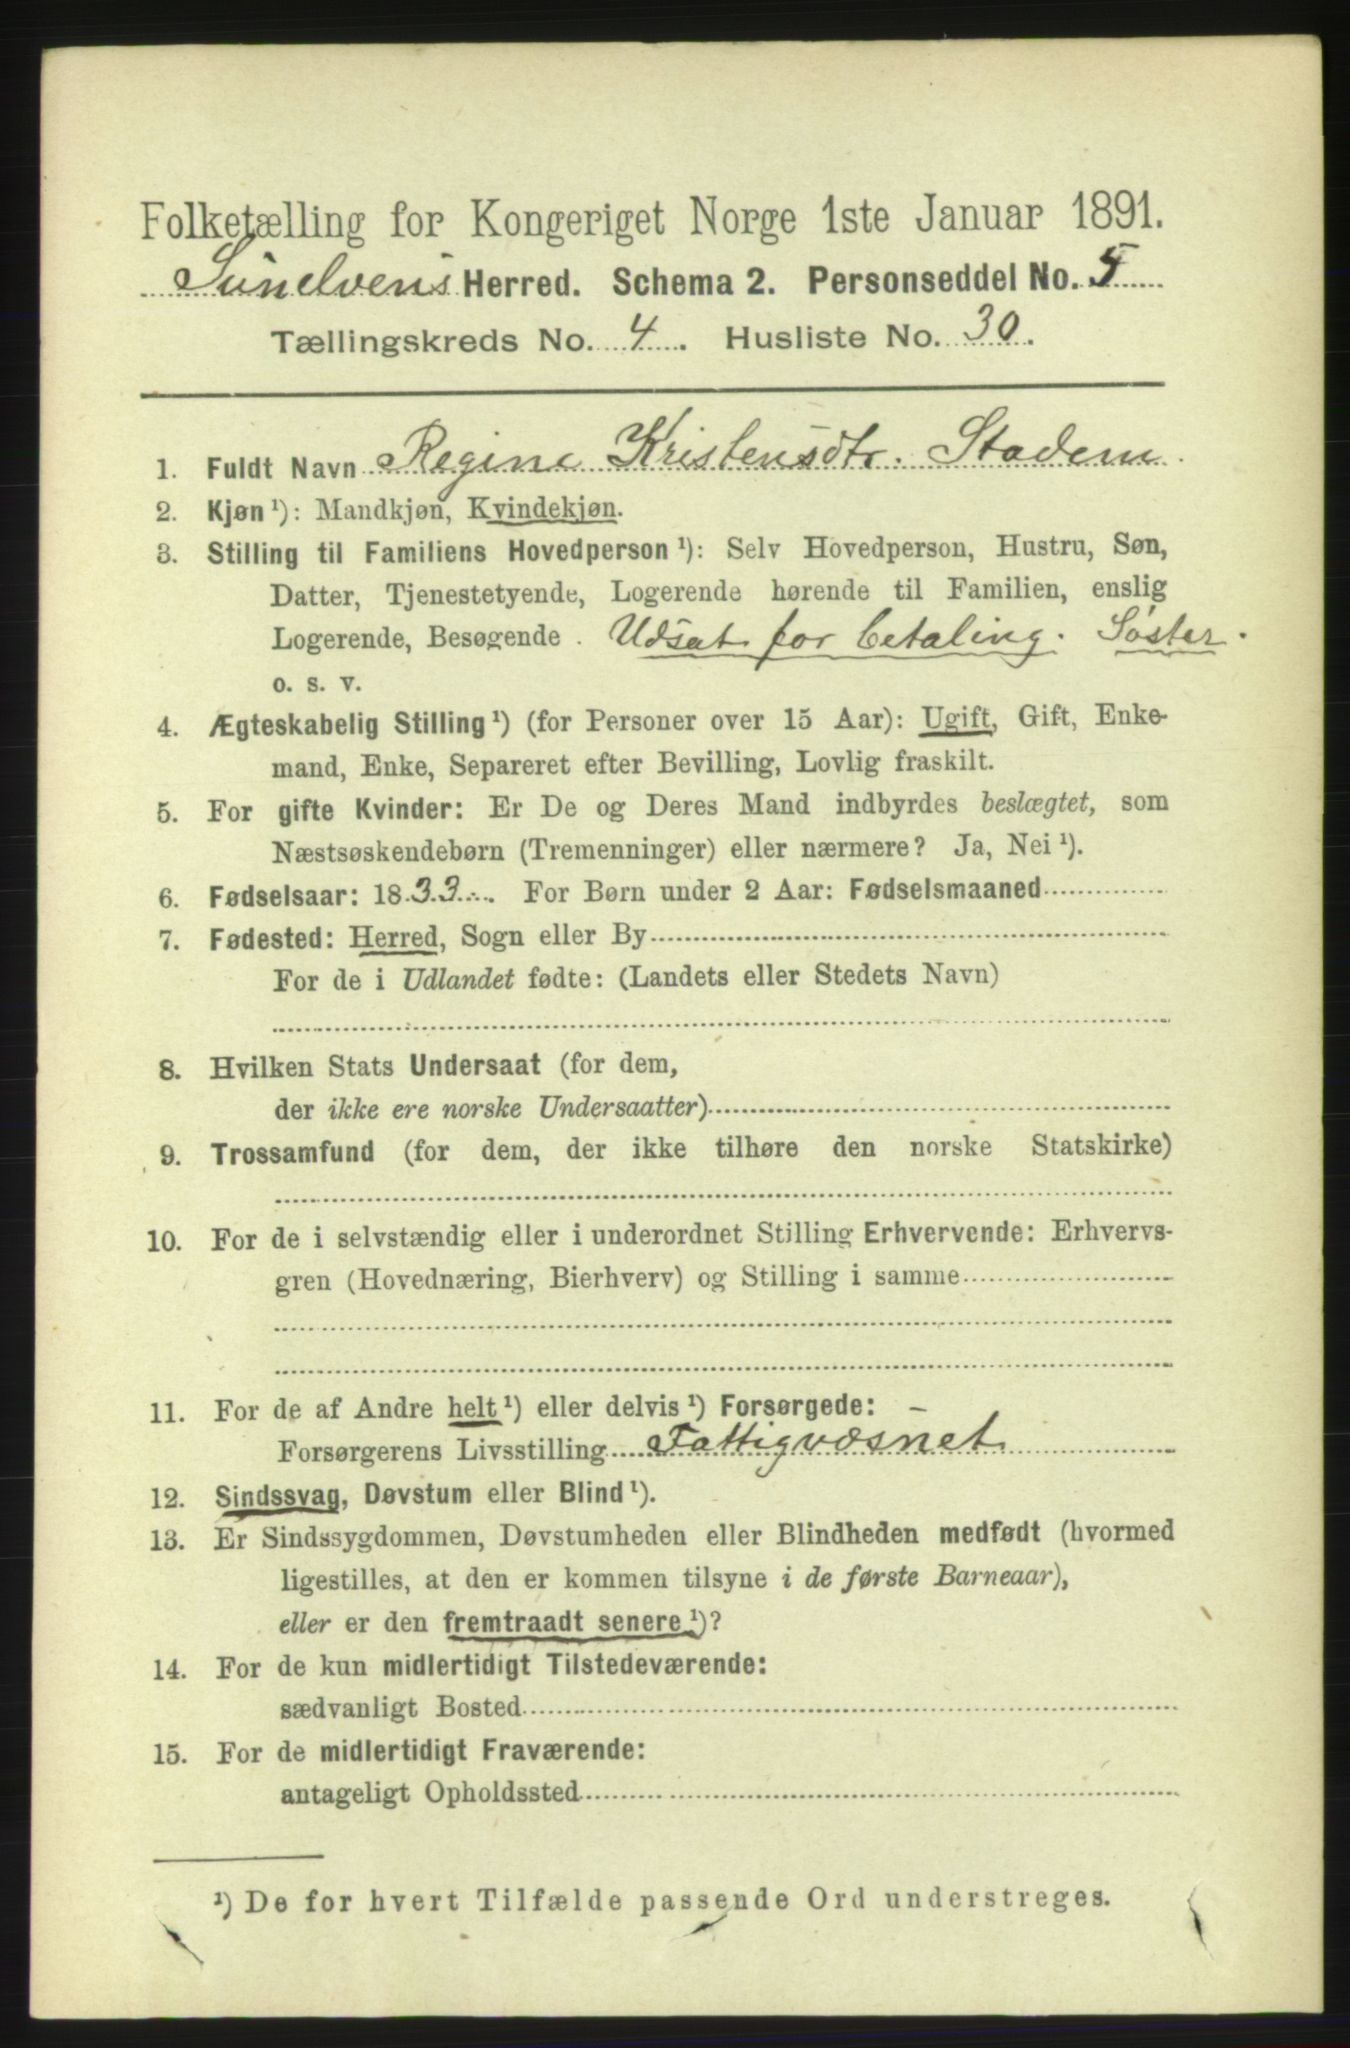 Folketælling for Kongeriget Norge 1ste Januar 1891.
Sunelvens Herred. Schema 2. Personseddel No. 5
Tællingskreds No. 4. Husliste No. 30.
1. Fuldt Navn Regine Kristensdtr. Stadem
2. Kjøn¹): Mandkjøn, Kvindekjøn.
3. Stilling til Familiens Hovedperson¹): Selv Hovedperson, Hustru, Søn,
Datter, Tjenestetyende, Logerende hørende til Familien, enslig
Logerende, Besøgende. Udsat for betaling. Søster.
o. s. v.
4. Ægteskabelig Stilling¹) (for Personer over 15 Aar): Ugift, Gift, Enke-
mand, Enke, Separeret efter Bevilling, Lovlig fraskilt.
5. For gifte Kvinder: Er De og Deres Mand indbyrdes beslægtet, som
Næstsøskendebørn (Tremenninger) eller nærmere? Ja, Nei¹).
6. Fødselsaar: 1833. For Børn under 2 Aar: Fødselsmaaned
7. Fødested: Herred, Sogn eller By
For de i Udlandet fødte: (Landets eller Stedets Navn)
8. Hvilken Stats Undersaat (for dem,
der ikke ere norske Undersaatter)
9. Trossamfund (for dem, der ikke tilhøre den norske Statskirke)
10. For de i selvstændig eller i underordnet Stilling Erhvervende: Erhvervs-
gren (Hovednæring, Bierhverv) og Stilling i samme
11. For de af Andre helt¹) eller delvis¹) Forsørgede:
Forsørgerens Livsstilling Fattigvæsnet
12. Sindssvag, Døvstum eller Blind¹).
13. Er Sindssygdommen, Døvstumheden eller Blindheden medfødt (hvormed
ligestilles, at den er kommen tilsyne i de første Barneaar),
eller er den fremtraadt senere¹)?
14. For de kun midlertidigt Tilstedeværende:
sædvanligt Bosted
15. For de midlertidigt Fraværende:
antageligt Opholdssted
¹) De for hvert Tilfælde passende Ord understreges.